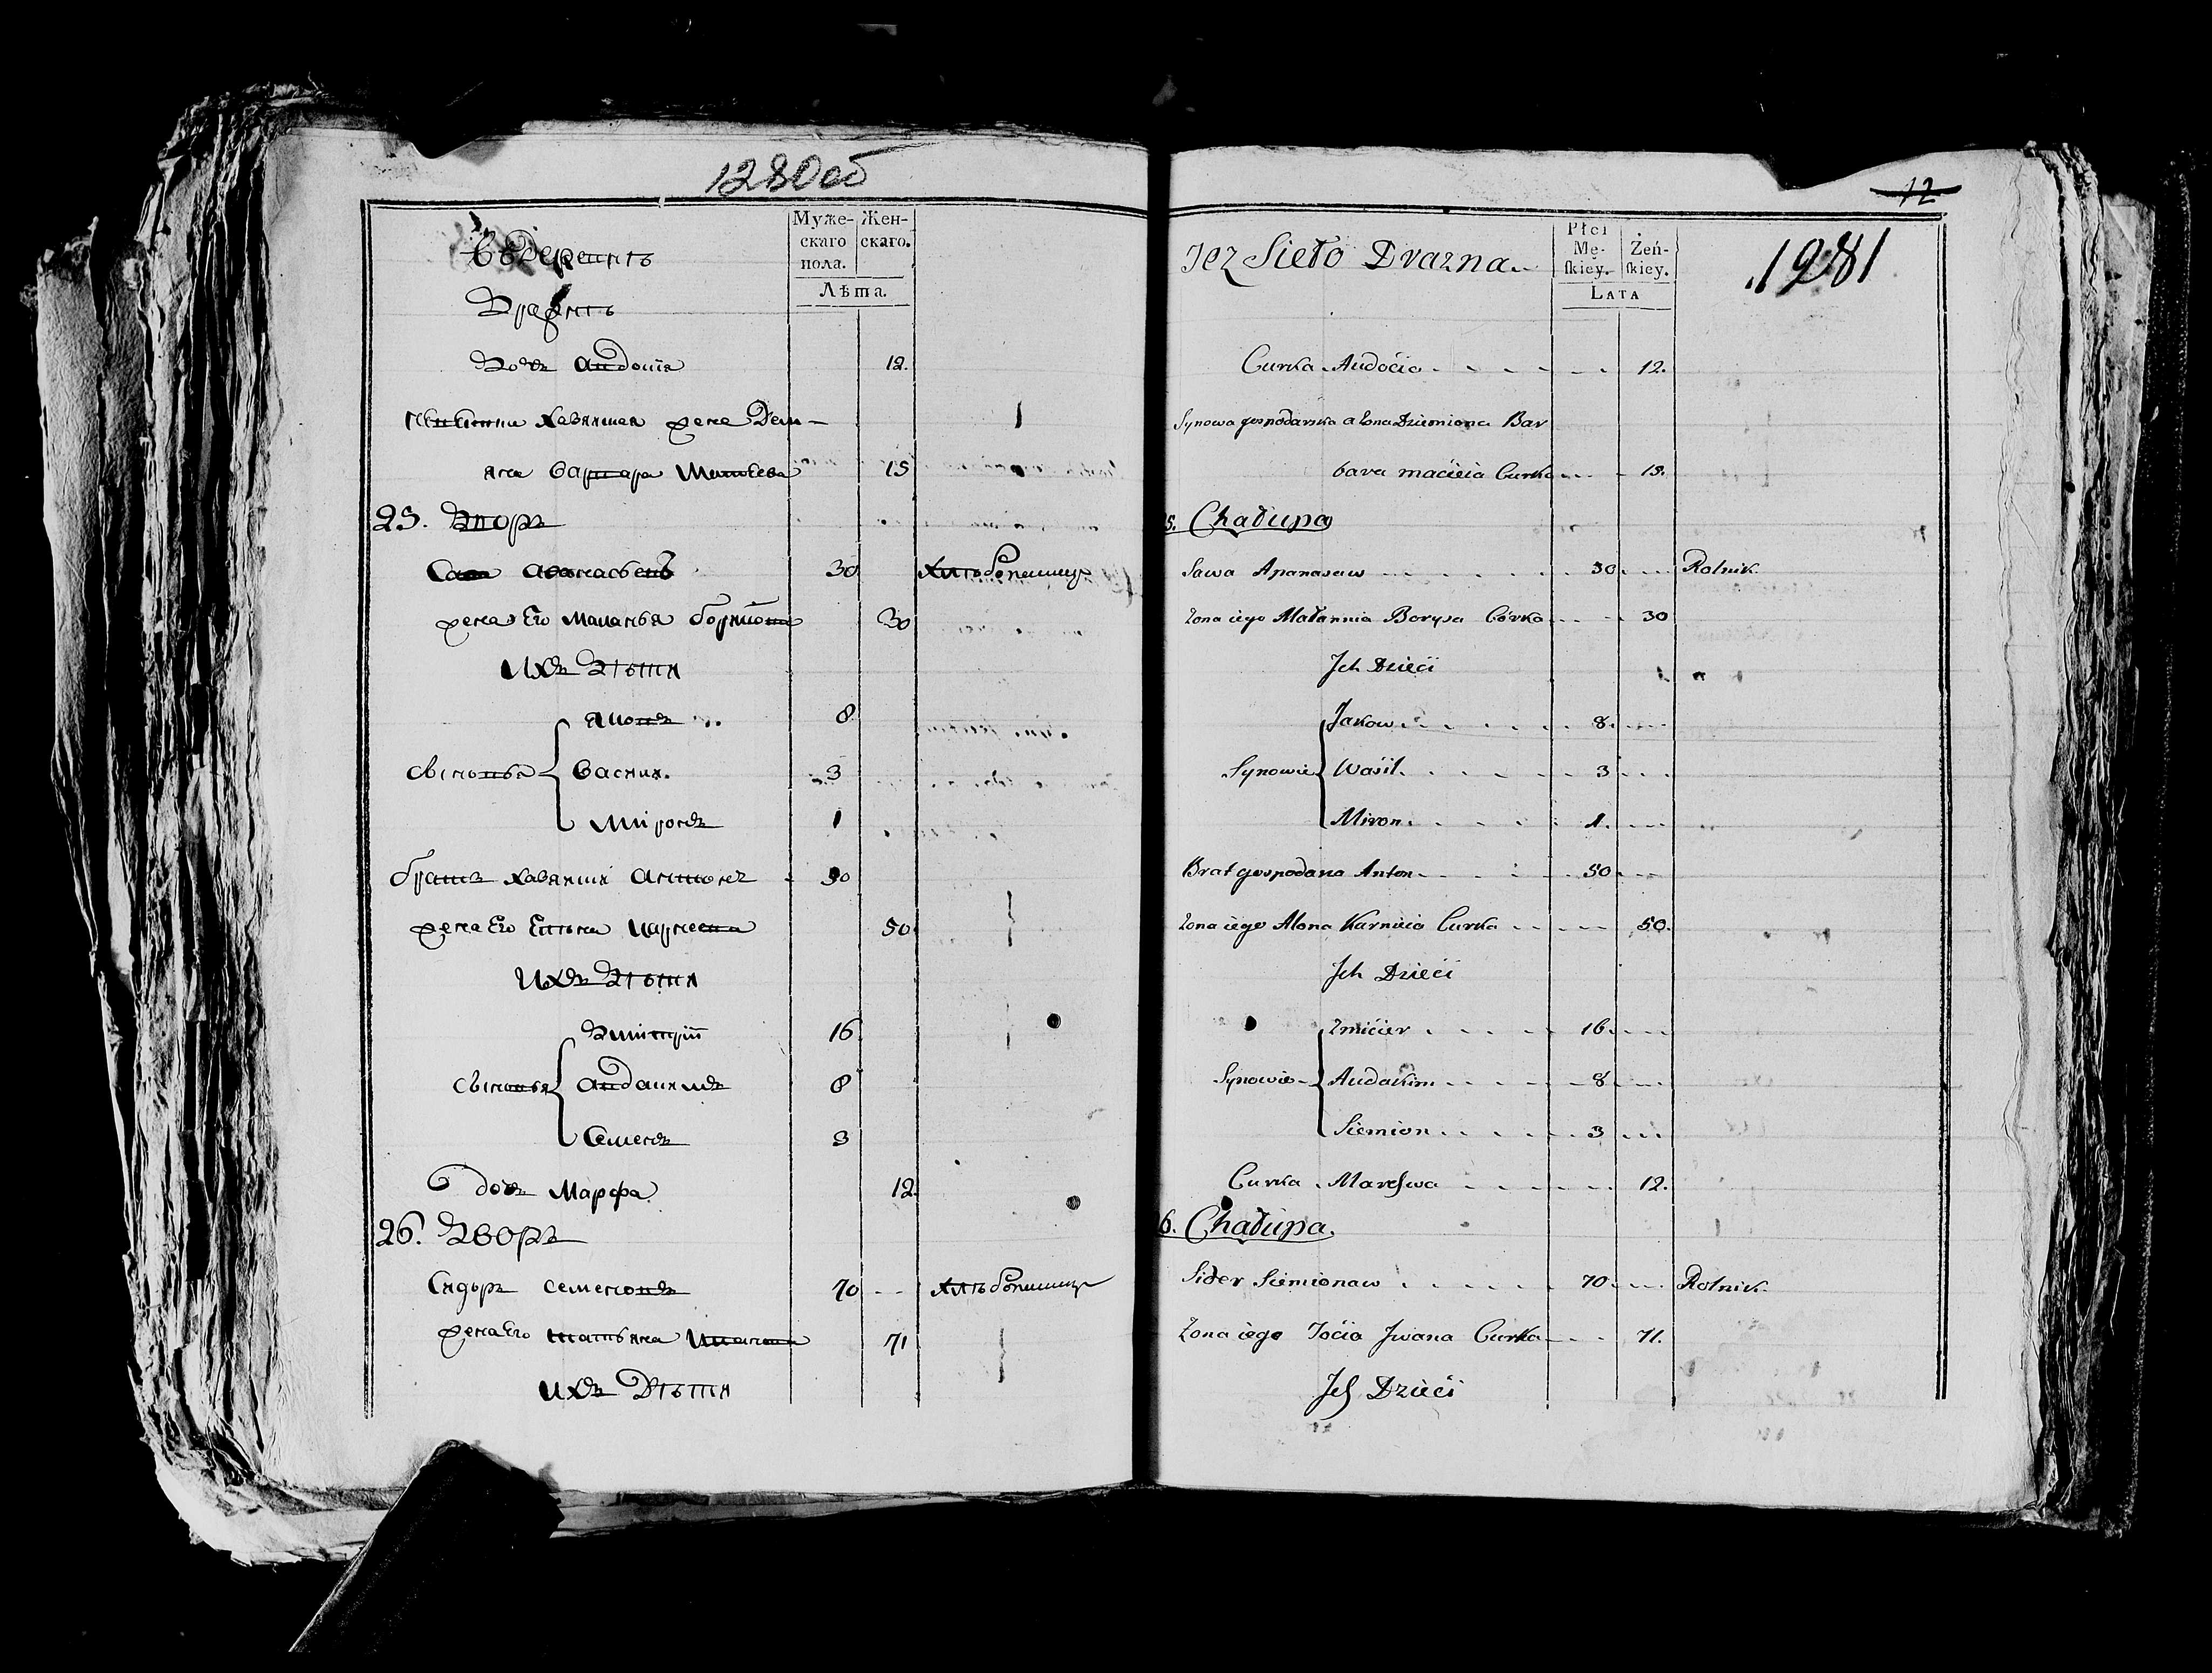 1280об
Муже-
скаго
пола.
Жен-
скаго.
Лѣта.
въ деревнѣ
Дочь Авдотія 12.
Хазяиная жена Дем-
яна Варвара 15
25. Дворъ
Сава Афанасьевъ 30 Хлѣбопашецъ
жена Его Маланья Борисова 30
ихъ Дѣти
Яковъ 8
сыновья Василь. 3
Миронъ 1
братъ хазяина Антонъ 50
жена Его Елѣна 50
ихъ Дѣти
Дмитрій 16
сыновья Авдакимъ 8
Семенъ 3
дочь Марфа 12.
26. Дворъ
Сидоръ Семеновъ 70 -- Хлѣбопашецъ
жена Его татьяна Иванова 71
ихъ Дѣти
12
1281
Jez Sieło Dvazna
Płci
Mę-
skiey.
Żeń-
skiey.
Lata
Curka Audocia 12.
Synowa gospodarska a żona Dziemiana Bar
bara macieia Curka 15.
5. Chałupa
Sawa Apanasaw 30 Rolnik
Zona iego Małannia Borysa Córka 30
Jch Dzieci
Jakow 8
Synowie Wasil 3
Miron 1.
Brat gospodarza Anton 50
Zona iego Alona Karnieia Curka 50.
Jch Dzieci
Zmicier 16
Synowie Audakim 8
Siemion 3
Curka Marsswa 12.
6. Chałupa.
Sider Siemionaw 70 Rolnik
Zona iego Tocia Jwana Curka 71.
Jch Dzieci